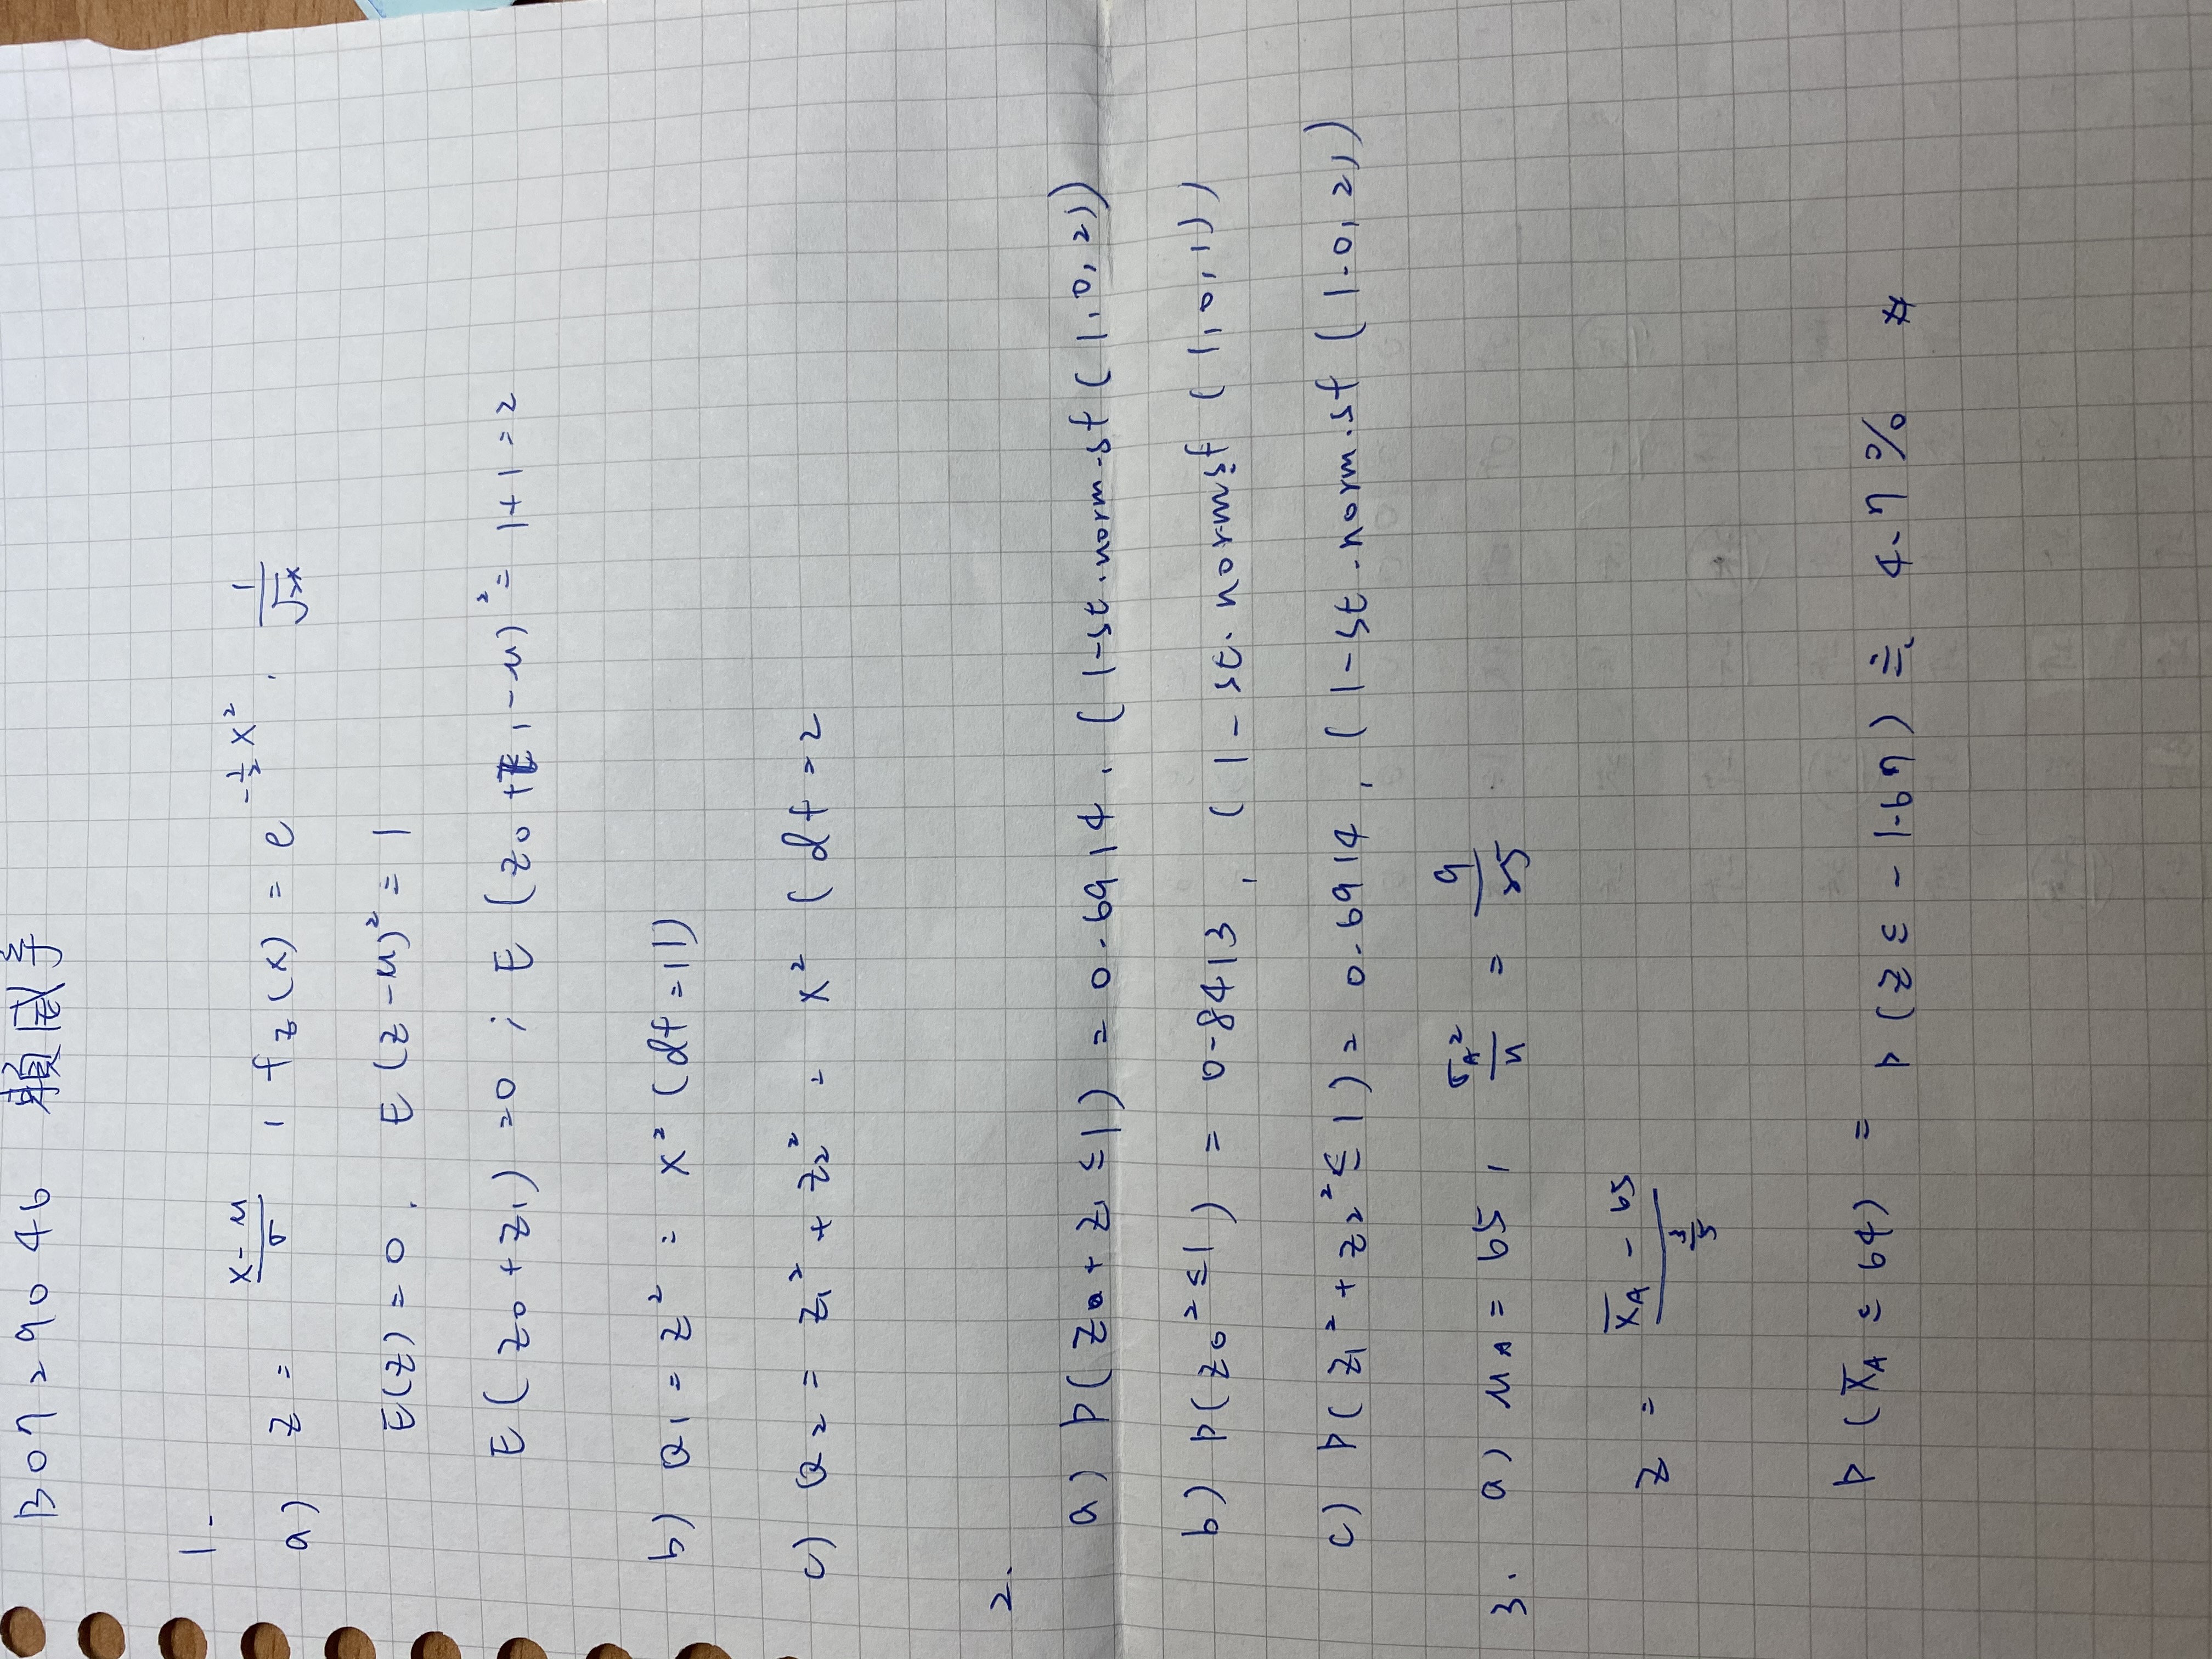 B0729046 賴威孚
1.
a) Z = (x-μ)/σ , f_Z(x) = e^(-1/2 x²) · 1/√2x
E(Z) = 0 , E(Z-μ)² = 1
E(Z₀+Z₁) = 0 ; E(Z₀+Z₁-μ)² = 1+1 = 2
b) Q₁ = Z² = x² (df=1)
c) Q₂ = Z₁² + Z₂² = x² (df=2
2.
a) P(Z₀+Z₁≤1) = 0.6914 , (1-st.norm.sf(1,0,2))
b) P(Z₀²≤1) = 0.8413 , (1-st.norm.sf(1,0,1))
c) P(Z₁²+Z₂²≤1) = 0.6914 , (1-st.norm.sf(1.0,2))
3. a) μ_A = 65 , σ_A²/n = 9/25
Z = (x̄_A - 65)/(3/5)
P(x̄_A ≤ 64) = P(Z ≤ -1.67) ≒ 4.7%